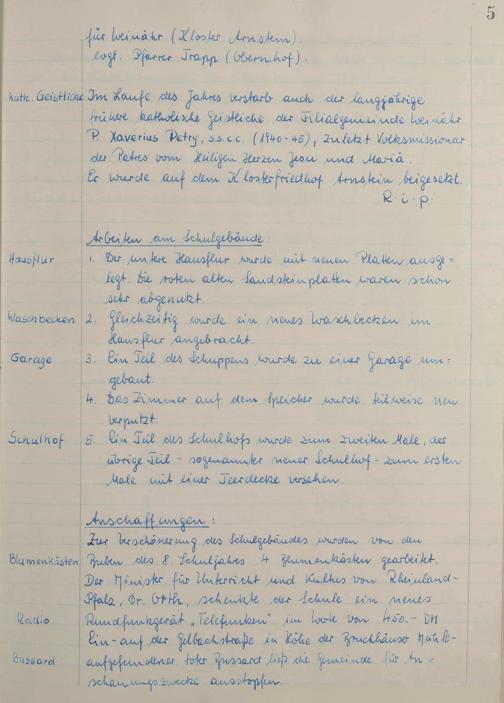 5
für Weinähr (Kloster Arnstein).
evgl. Pfarrer Trapp (Obernhof).
kath. Geistliche Im Laufe des Jahres verstarb auch der langjährige
frühere katholische Geistliche der Filialgemeinde Weinähr
P. Xaverius Petry, s.s.c.c. (1940-45), zuletzt Volksmissionar
der Patres vom Heiligen Herzen Jesu und Mariä.
Er wurde auf dem Klosterfriedhof Arnstein beigesetzt.
R. i. p.
Arbeiten am Schulgebäude:
Hausflur 1. Der untere Hausflur wurde mit neuen Platten ausge=
legt. Die roten alten Sandsteinplatten waren schon
sehr abgenutzt
Waschbecken 2. Gleichzeitig wurde ein neues Waschbecken im
Hausflur angebracht.
Garage 3. Ein Teil des Schuppens wurde zu einer Garage um=
gebaut.
4. Das Zimmer auf dem Speicher wurde teilweise neu
verputzt.
Schulhof 5. Ein Teil des Schulhofs wurde zum zweiten Male, der
übrige Teil - sogenannter neuer Schulhof - zum ersten
Male mit einer Teerdecke versehen.
Anschaffungen:
Zur Verschönerung des Schulgebäudes wurden von den
Blumenkästen Buben des 8. Schuljahres 4 Blumenkästen gearbeitet.
Der Minister für Unterricht und Kultus von Rheinland-
Pfalz, Dr. Orth, schenkte der Schule ein neues
Radio Rundfunkgerät „Telefunken" im Werte von 450.- DM
Ein - auf der Gelbachstraße in Höhe der Bruchhäuser Mühle-
Bussard aufgefundener toter Bussard ließ die Gemeinde für An=
schauungszwecke ausstopfen.